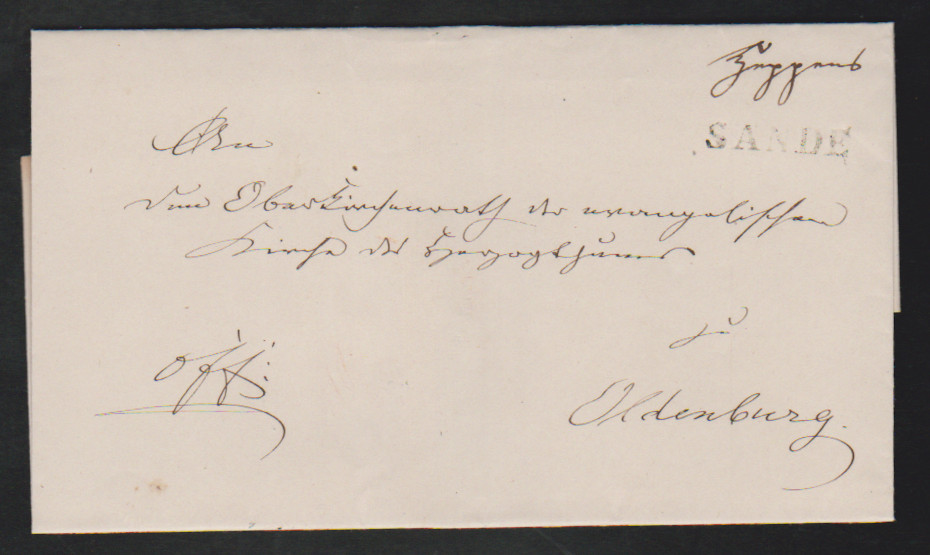 Heppens
SANDE
An
den Oberkirchenrath der evangelischen
Kirche des Herzogthums
zu
Oldenburg.
off: